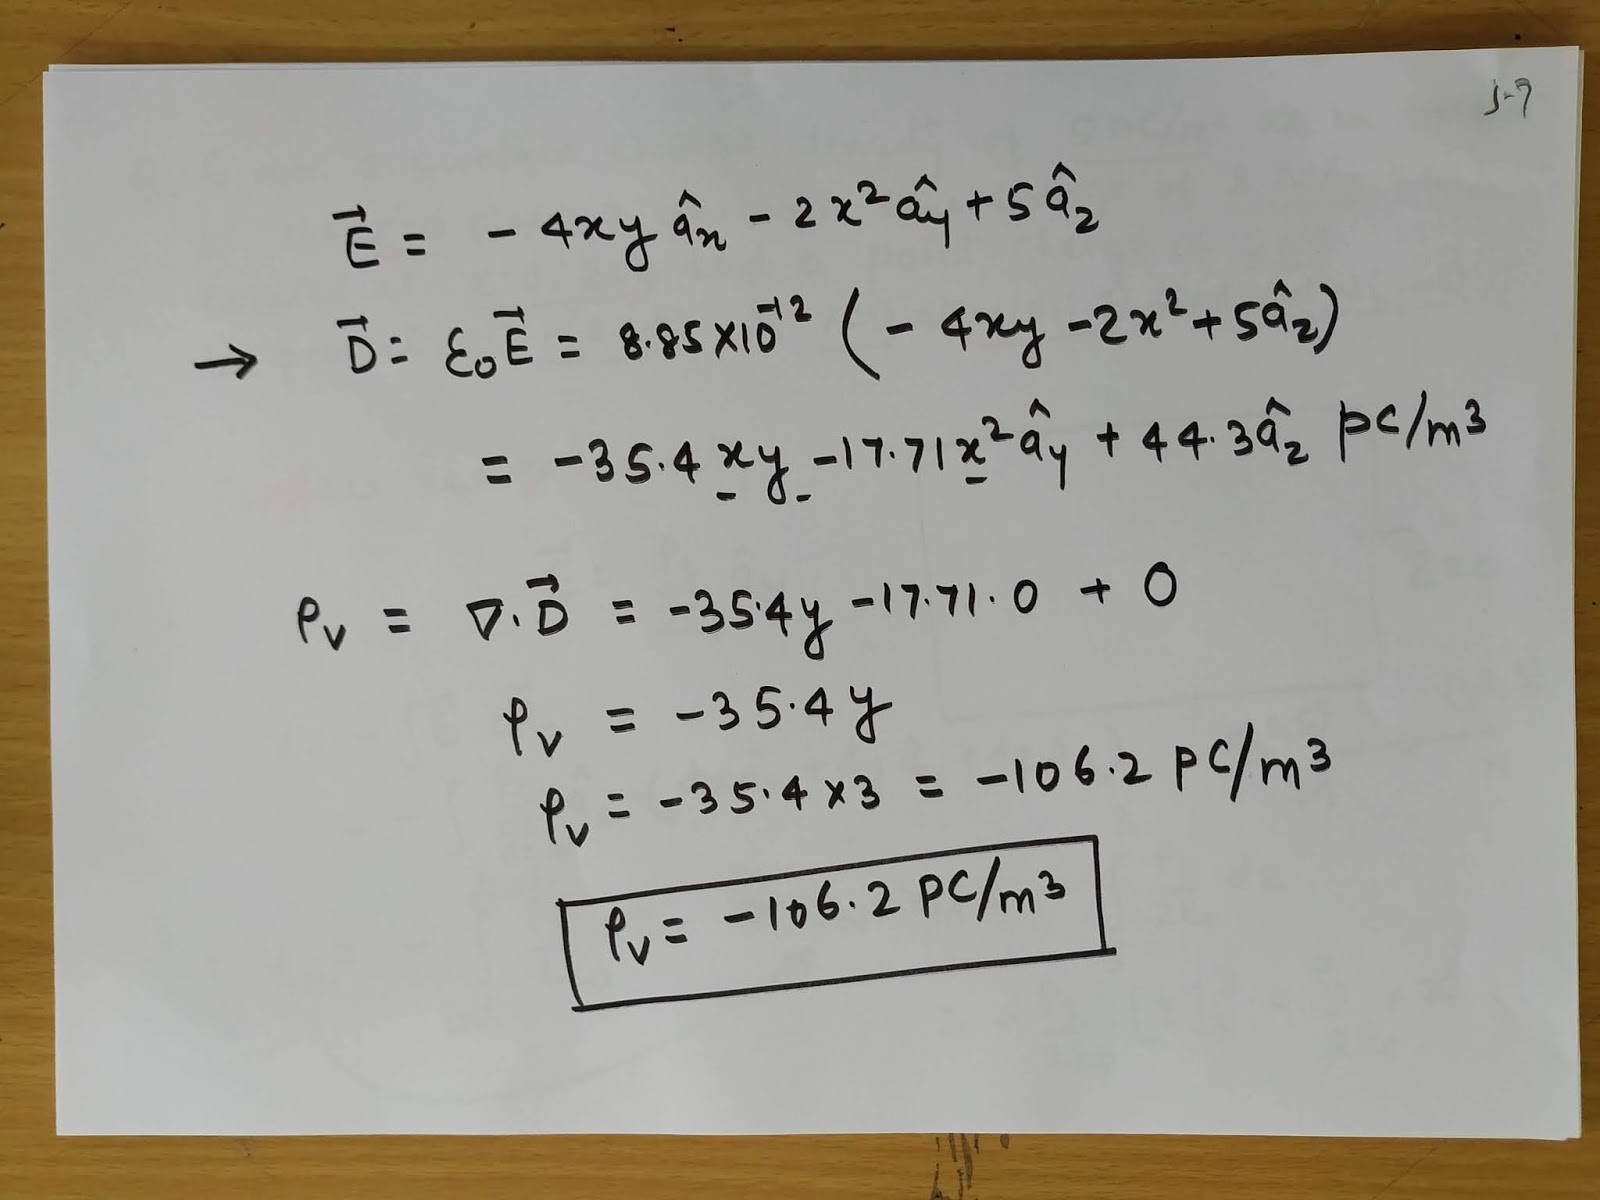 5-7
E⃗ = - 4xy âx - 2x² ây + 5 âz
→ D⃗ = ε₀E⃗ = 8.85×10⁻¹² ( - 4xy - 2x² + 5âz)
= -35.4 xy - 17.71x² ây + 44.3âz pC/m3
ρv = ∇.D⃗ = -35.4y - 17.71.0 + 0
ρv = -35.4 y
ρv = -35.4 x3 = -106.2 pC/m3
ρv = -106.2 pC/m3